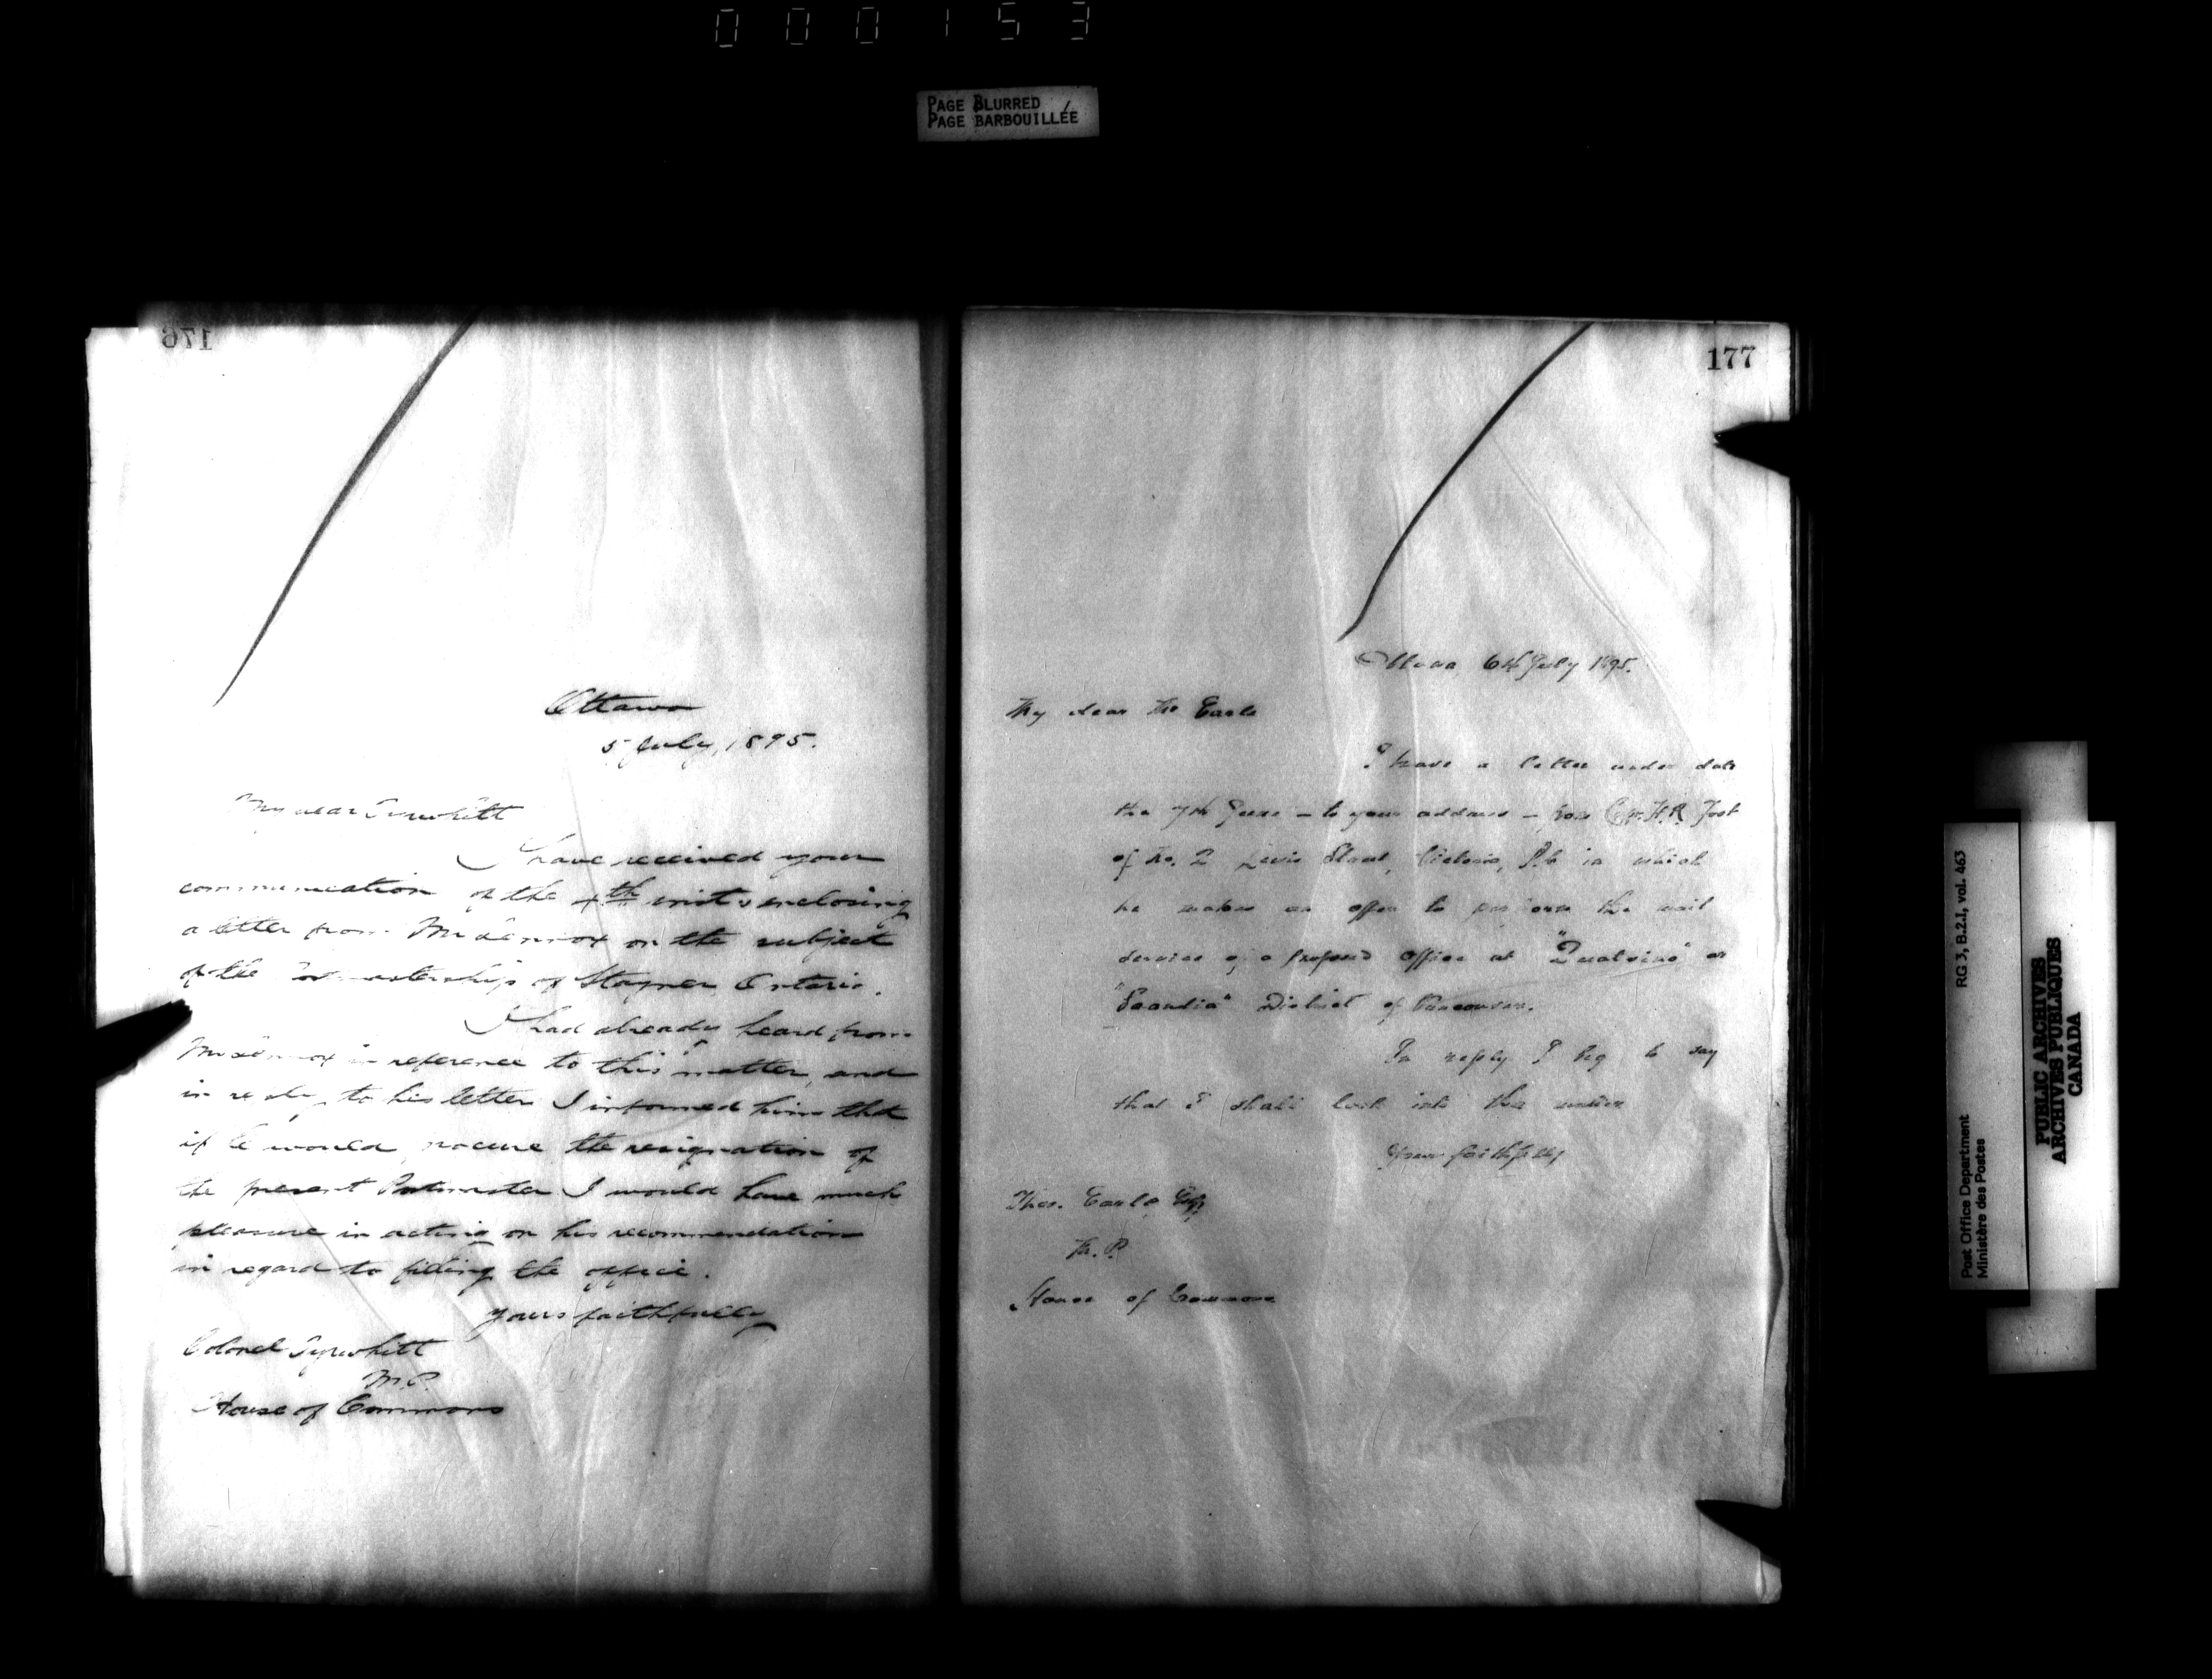 000153
PAGE BLURRED
PAGE BARBOUILLÉE
176
Ottawa
5 July, 1895.
My dear Tyrwhitt
I have received your
communication of the 4th inst enclosing
a letter from Mr Lennox on the subject
of the Postmastership of Stayner Ontario.
I had already heard from
Mr Lennox in reference to this matter, and
in reply to his letter I informed him that
if he would procure the resignation of
the present Postmaster I would have much
pleasure in acting on his recommendation
in regard to filling the office.
Yours faithfully
Colonel Tyrwhitt
M.P.
House of Commons
177
Ottawa, 6th July 1895.
My dear Mr Earle
I have a letter under date
the 7th June - to your address - from H.R. Foot
of No. 2 Lewis Street, Victoria, B.C. in which
he makes an offer to perform the mail
service of a proposed office at "Quatsino" or
"Scandia" District of Vancouver.
In reply I beg to say
that I shall look into the matter
Yours faithfully
Thos. Earle Esq
M.P.
House of Commons
Post Office Department
Ministère des Postes
RG 3, B.2.I, vol. 463
PUBLIC ARCHIVES
ARCHIVES PUBLIQUES
CANADA